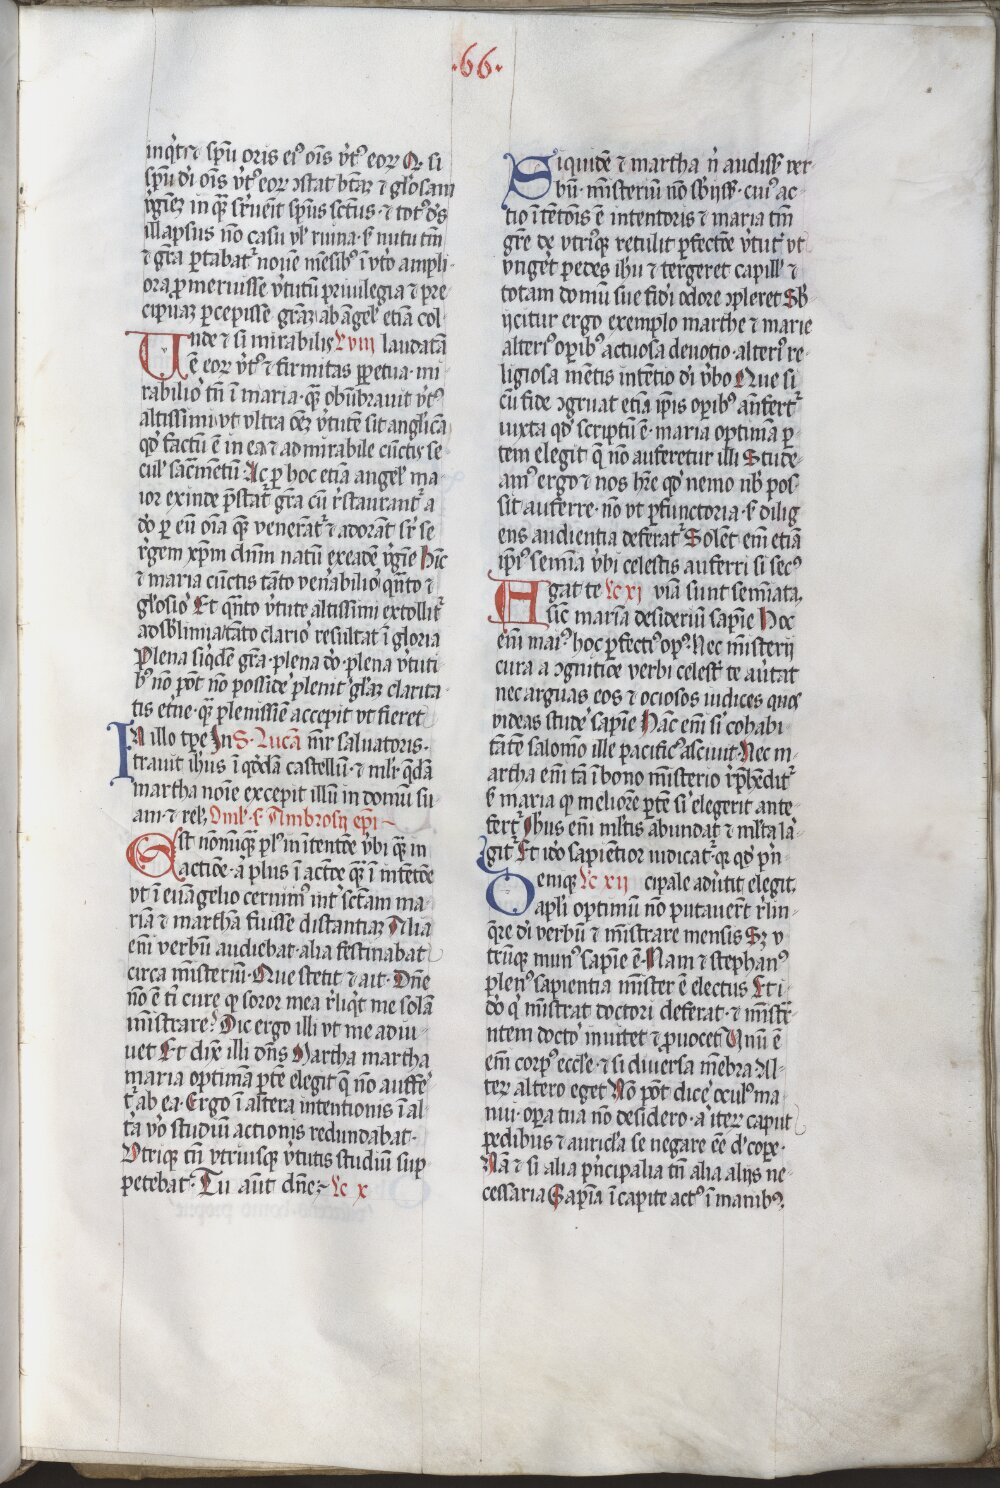 ·66·
inq̇t ⁊ sp̄u oris ei⁹ ōis v̓t⁹ eoꝝ Q̄ si
sp̄u di ōis v̓t⁹ eoꝝ ɔstat btāꝫ ⁊ glosam
v̓ginēꝫ in qua seruēit sp̄us sctūs · ⁊ tot⁹ d̓s
illapsus nō casu vl̓ ruina · s̓ nutu tm̄
⁊ gr̄a portabat᷑ nouē mēsib⁹ ī vto ampli-
ora ꝓmeruisse v̓tutū priuilegia ⁊ pre
cipuaꝫ percepisse gr̄aꝫ ab angel̓ etiā col
Unde ⁊ si mirabilis Lviii laudatā
ē eoꝝ v̓t⁹ ⁊ firmitas ꝑpetua · mi
rabilio᷑ tn̄ ī maria · quā obūbrauit v̓t⁹
altissimi · vt vltra oēꝫ v̓tutē sit anglicā
qd̓ factū ē in ea ⁊ admirabile cūctis se
cul̓ sacm̄entū · Ac ꝑ hoc etiā angel̓ ma-
ior exinde p̄stat᷑ gr̄a cū r̓staurant᷑ a
dō ꝑ eū oīa quē venerāt᷑ ⁊ adorāt sr̄ se
r̓gem xp̄m dnm̄ natū ex eadē v̓gīe hīc
⁊ maria cūctis tāto ven̓abilio᷑ qn̄to ⁊
gl̓osio᷑ Et qn̄to v̓tute altissimi extollit᷑
ad sb̓limia tāto clario᷑ resultat ī gloria
Plena siqd̓e gr̄a · plena dō · plena v̓tuti
b⁹ nō pōt nō possid̓e plenit̓ gl̓aꝫ clarita-
tis et̓ne · quā plenissīe accepit vt fieret
In illo tp̄e In S· Lucā m̄r saluatoris ·
trauit ih̓us ī qd̓da castellū · ⁊ ml̓r q̄dā
martha noīe excepit illū in domū su
am · ⁊ rel̓· Oml̓· s̓ Ambrosij ep̄i
Est nonūq̄ꝫ pl⁹ in itentōe v̓bi quā in
actiōe · a plus ī actōe quā ī intētōe
vt ī euāgelio cernim⁹ int̓ sctam ma-
riā ⁊ marthā fuisse distantiaꝫ Alia
em̄ verbū audiebat · alia festinabat
circa mīsteriū · Que stetit ⁊ ait · Dn̄e
nō ē ti cure ꝙ soror mea r̓liq̇t me solā
mīstrare? Dic ergo illi vt me adiu-
uet Et dix̄ illi dn̄s Martha martha
maria optimā ptē elegit q̄ nō auffe-
t᷑ ab ea · Ergo ī altera intentionis ī al-
t̓a v̓o studiū actionis redundabat ·
Utriqꝫ tn̄ vtriusqꝫ v̓tutis studiū supp
petebat · Tu aūt dn̄e ⁊ Lc x
Siquidē ⁊ martha n̓ audiss̓ ver
bū · mīsteriū nō sb̓ijss̓ · cui⁹ ac-
tio ītētōis ē intentoris ⁊ maria tm̄
gr̄e de vtriꝫqꝫ retulit ꝑfectōe v̓tut̓ vt
vnget̓ pedes ih̓u ⁊ tergeret capill̓ ⁊
totam domū sue fidei odore ɔpleret Sb̓
ijcitur ergo exemplo marthe ⁊ marie
alteri⁹ opib⁹ actuosa deuotio · alteri⁹ re-
ligiosa mētis intētio di v̓bo Que si
cū fide ɔgruat etiā ip̄is opib⁹ an̄fert᷑
iuxta qd̓ scriptū ē · maria optimā p
tem elegit q̄ nō auferetur illi Stude
am⁹ ergo ⁊ nos hr̄e qd̓ nemo nb̓ pos-
sit auferre · nō vt ꝑfunctoria · s̓ dilig
ens audientia deferat᷑ Solēt em̄ etiā
ip̄i⁹ semīa v̓bi celestis auferri si sec⁹
Agat te Lc xi viā sunt semīata.
sic̄ mariā desideriū sapīe Hoc
em̄ mai⁹ hoc ꝑfecti⁹ op⁹ · Nec mīsterij
cura a ɔgnitōe verbi celest̓ te au̓tat
nec arguas eos ⁊ ociosos iudices quos
videas stude̓ sapīe Hāc em̄ si cohabi-
tātē salomo ille pacific⁹ asciuit · Nec m-
artha em̄ tā ī bono mīsterio r̓ph̓edit᷑
s̓ maria ꝙ meliorē ptē si elegerit ante
fert᷑ Ih̓us em̄ ml̓tis abundat ⁊ ml̓ta la-
git᷑ Et idō sapientior iudicat᷑ q̄ qd̓ p̓n
Deniqꝫ Lc xii cipale adu̓tit elegit.
apl̓i optimū nō putauer̄t r̓lin-
q̄re di verbū ⁊ mīstrare mensis Sꝫ v
trūqꝫ mun⁹ sapīe ē · Nam ⁊ stephan⁹
plen⁹ sapientia mīster ē electus Et i-
dō q̇ mīstrat doctori deferat · ⁊ mīstr̄-
ntem docto᷑ inuitet ⁊ ꝓuocet Unū ē
em̄ corp⁹ eccl̓e · ⁊ si diuersa mēbra Al-
teꝝ altero eget Nō pōt dice̓ ocul⁹ ma
nui · opa tua nō desidero · a iteꝝ caput
pedibus ⁊ auricl̓a se negare eē d̓ corpe ·
Nā ⁊ si alia p̓ncipalia tn̄ alia alijs ne-
cessaria Sapīa ī capite act⁹ ī manib⁹.